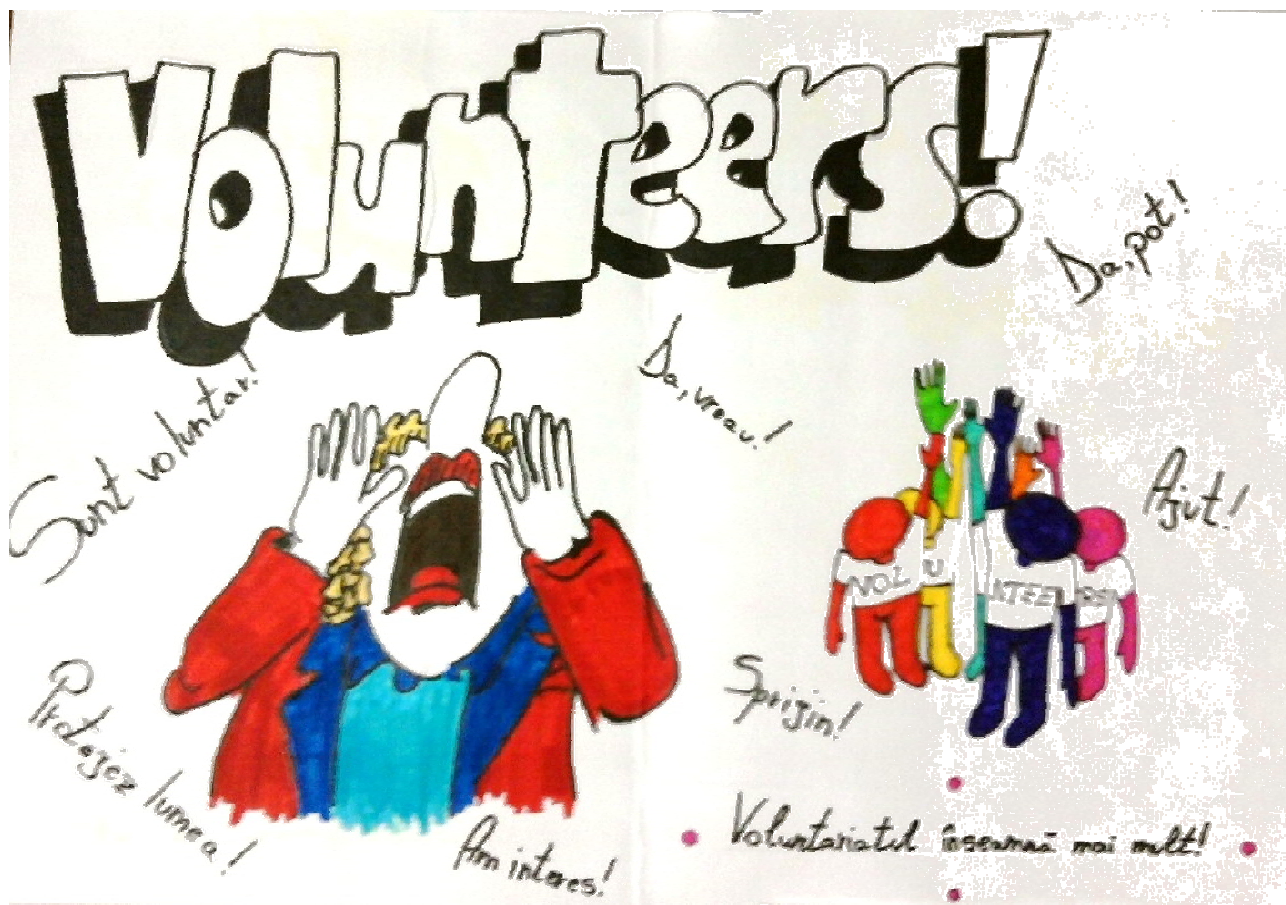 Volunteers!
Da, pot!
Sunt voluntar!
Da, vreau!
Ajut!
VOL U NTEE RS
Sprijin!
Protejez lumea!
Am interes!
Voluntariatul înseamnă mai mult!